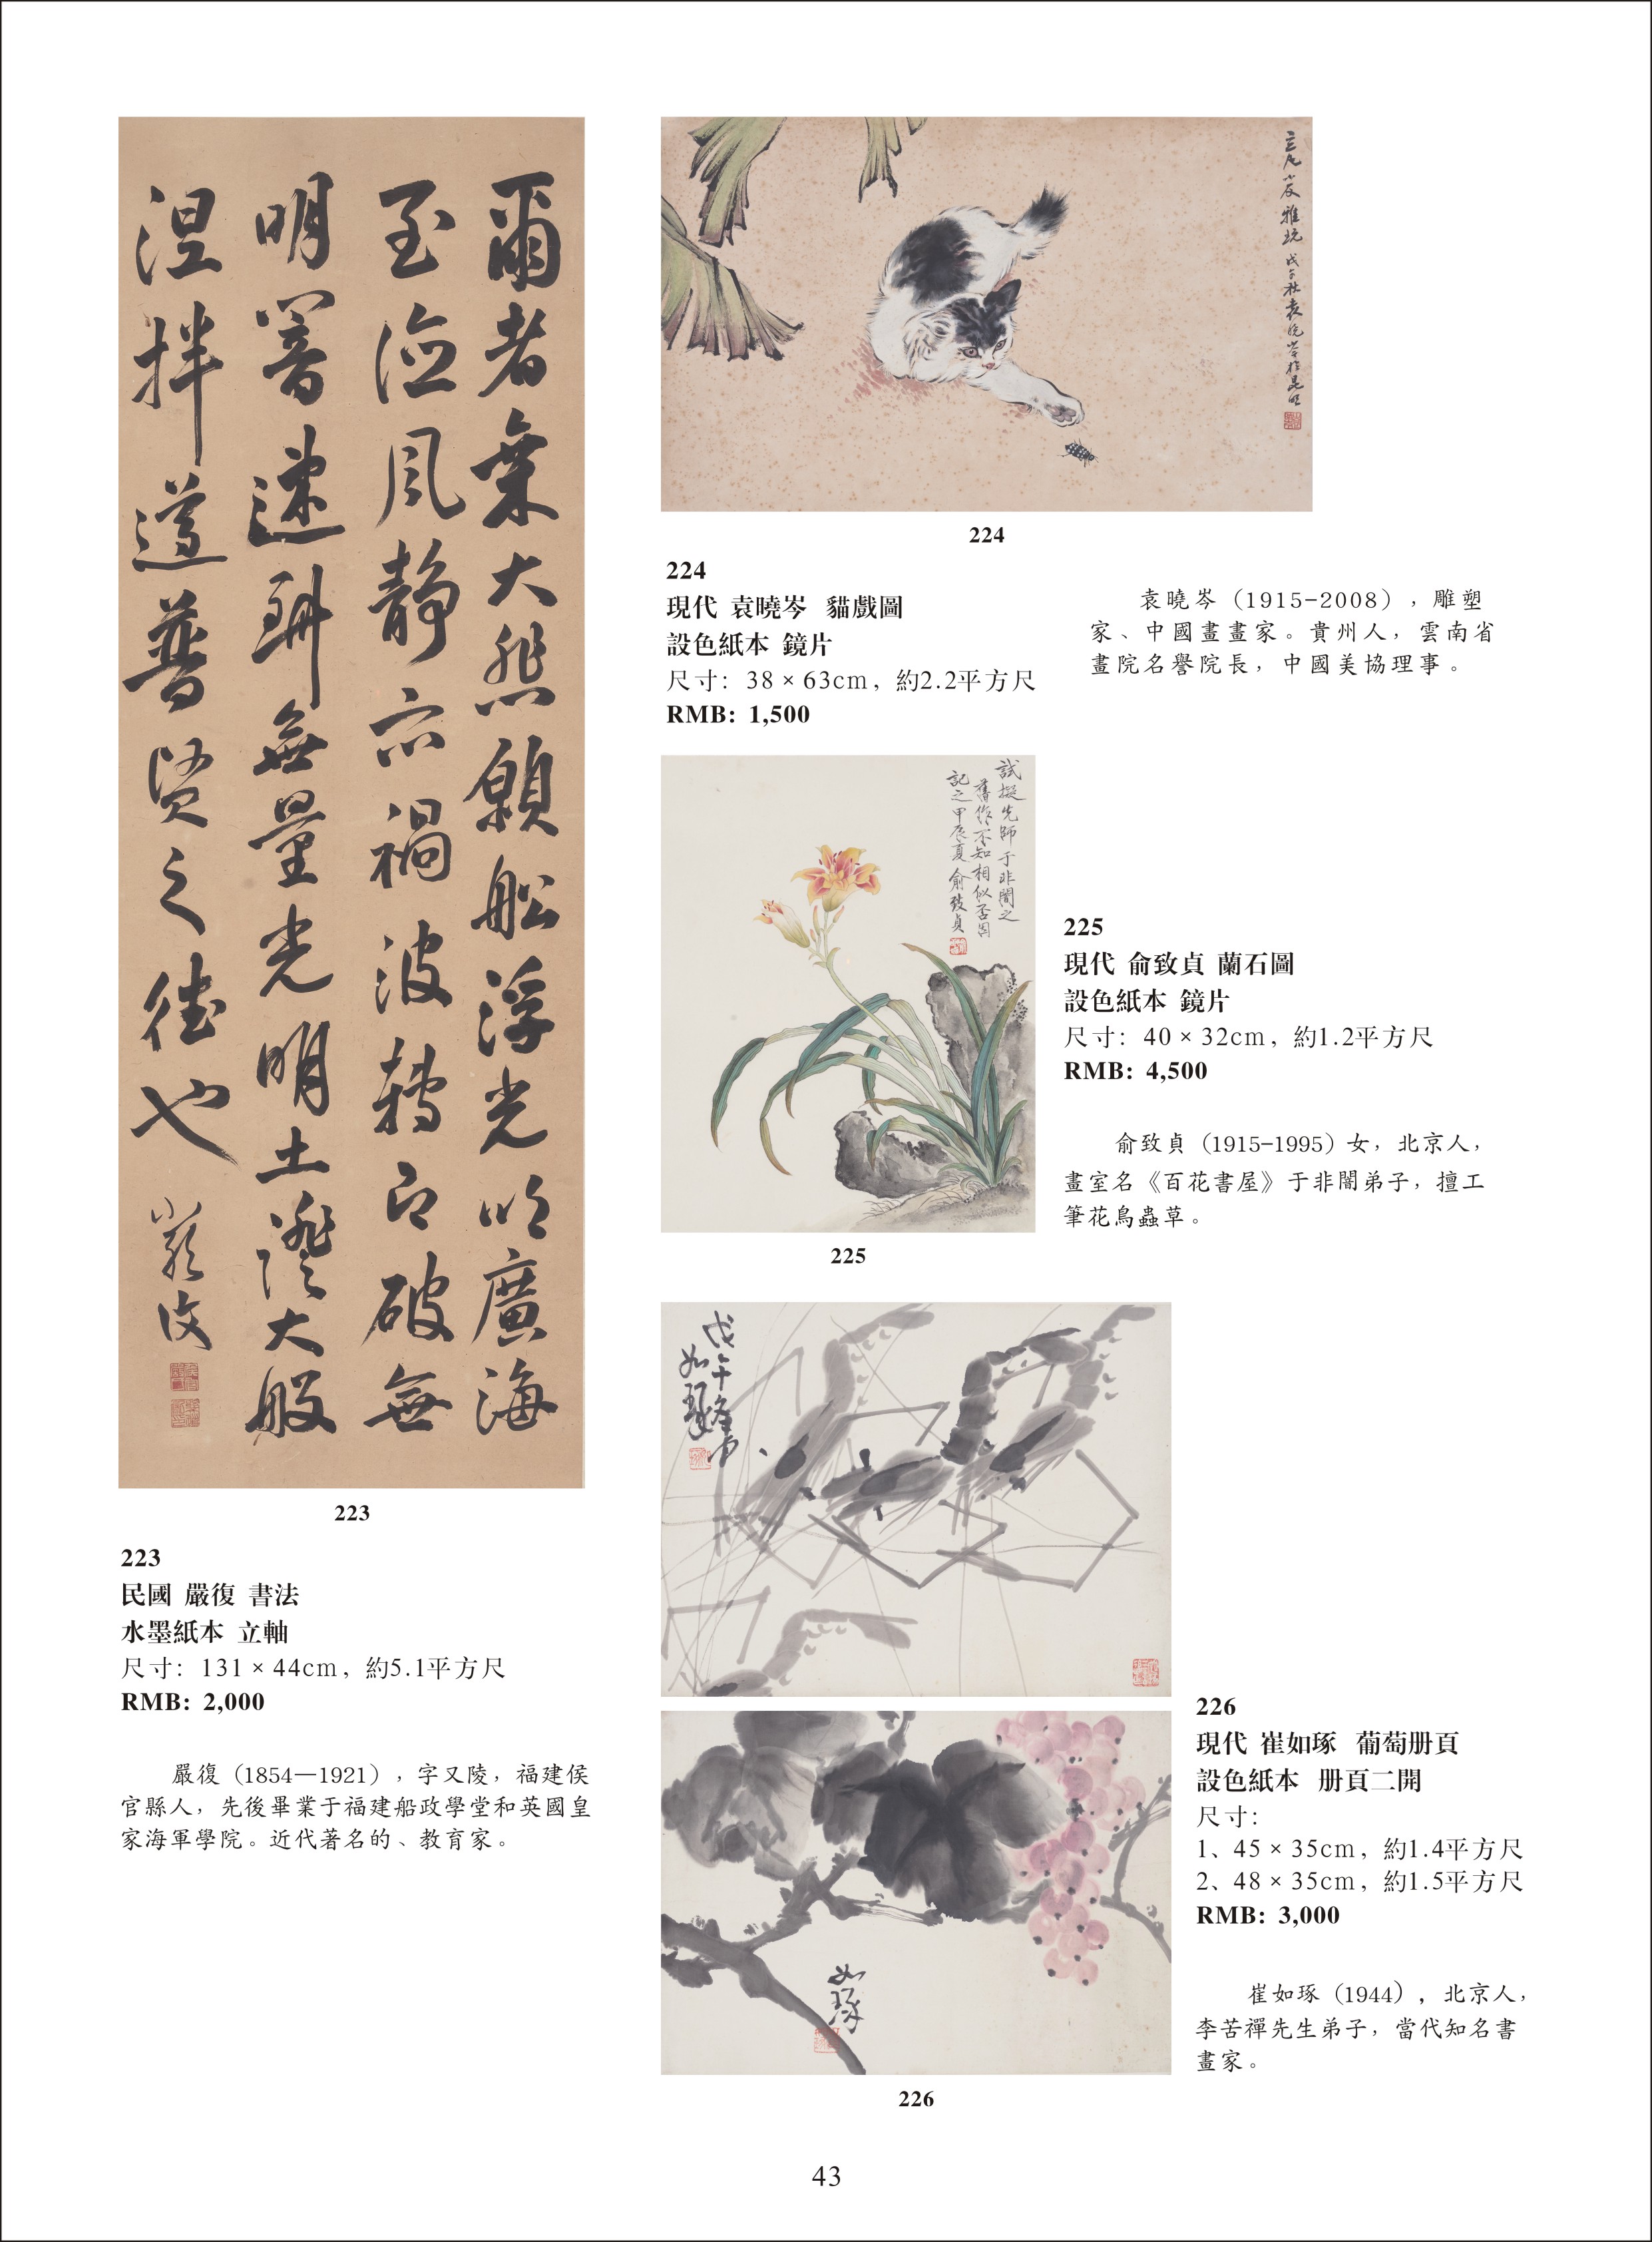 爾者乘大悲願船浮光明廣海
至德風靜亦禍波轉即破無
明暗速珊無量光明土證大般
涅拌遵普賢之德也
嚴復
223
223
民國 嚴復 書法
水墨紙本 立軸
尺寸：131×44cm，約5.1平方尺
RMB: 2,000
嚴復（1854—1921），字又陵，福建侯
官縣人，先後畢業于福建船政學堂和英國皇
家海軍學院。近代著名的、教育家。
雅玩 戊午秋袁曉岑於昆明
224
224
現代 袁曉岑 貓戲圖
設色紙本 鏡片
尺寸：38×63cm，約2.2平方尺
RMB: 1,500
袁曉岑（1915-2008），雕塑
家、中國畫畫家。貴州人，雲南省
畫院名譽院長，中國美協理事。
試擬先師于非闇之
舊作不知相似否因
記之甲辰夏俞致貞
225
225
現代 俞致貞 蘭石圖
設色紙本 鏡片
尺寸：40×32cm，約1.2平方尺
RMB: 4,500
俞致貞（1915-1995）女，北京人，
畫室名《百花書屋》于非闇弟子，擅工
筆花鳥蟲草。
戊午
如琢
如琢
226
226
現代 崔如琢 葡萄册頁
設色紙本 册頁二開
尺寸：
1、45×35cm，約1.4平方尺
2、48×35cm，約1.5平方尺
RMB: 3,000
崔如琢（1944），北京人，
李苦禪先生弟子，當代知名書
畫家。
43